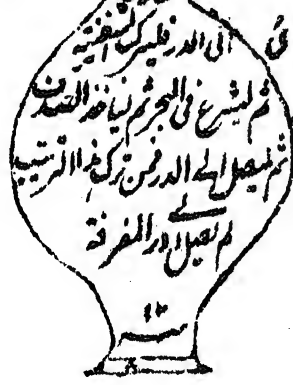 الى الدر فليركب السفينة
ثم ليشرع فى البحر ثم لياخذ الصدف
ثم ليصل الے الدر فمن ترك هذا الترتيب
لم يصل الے در المعرفة
١٢